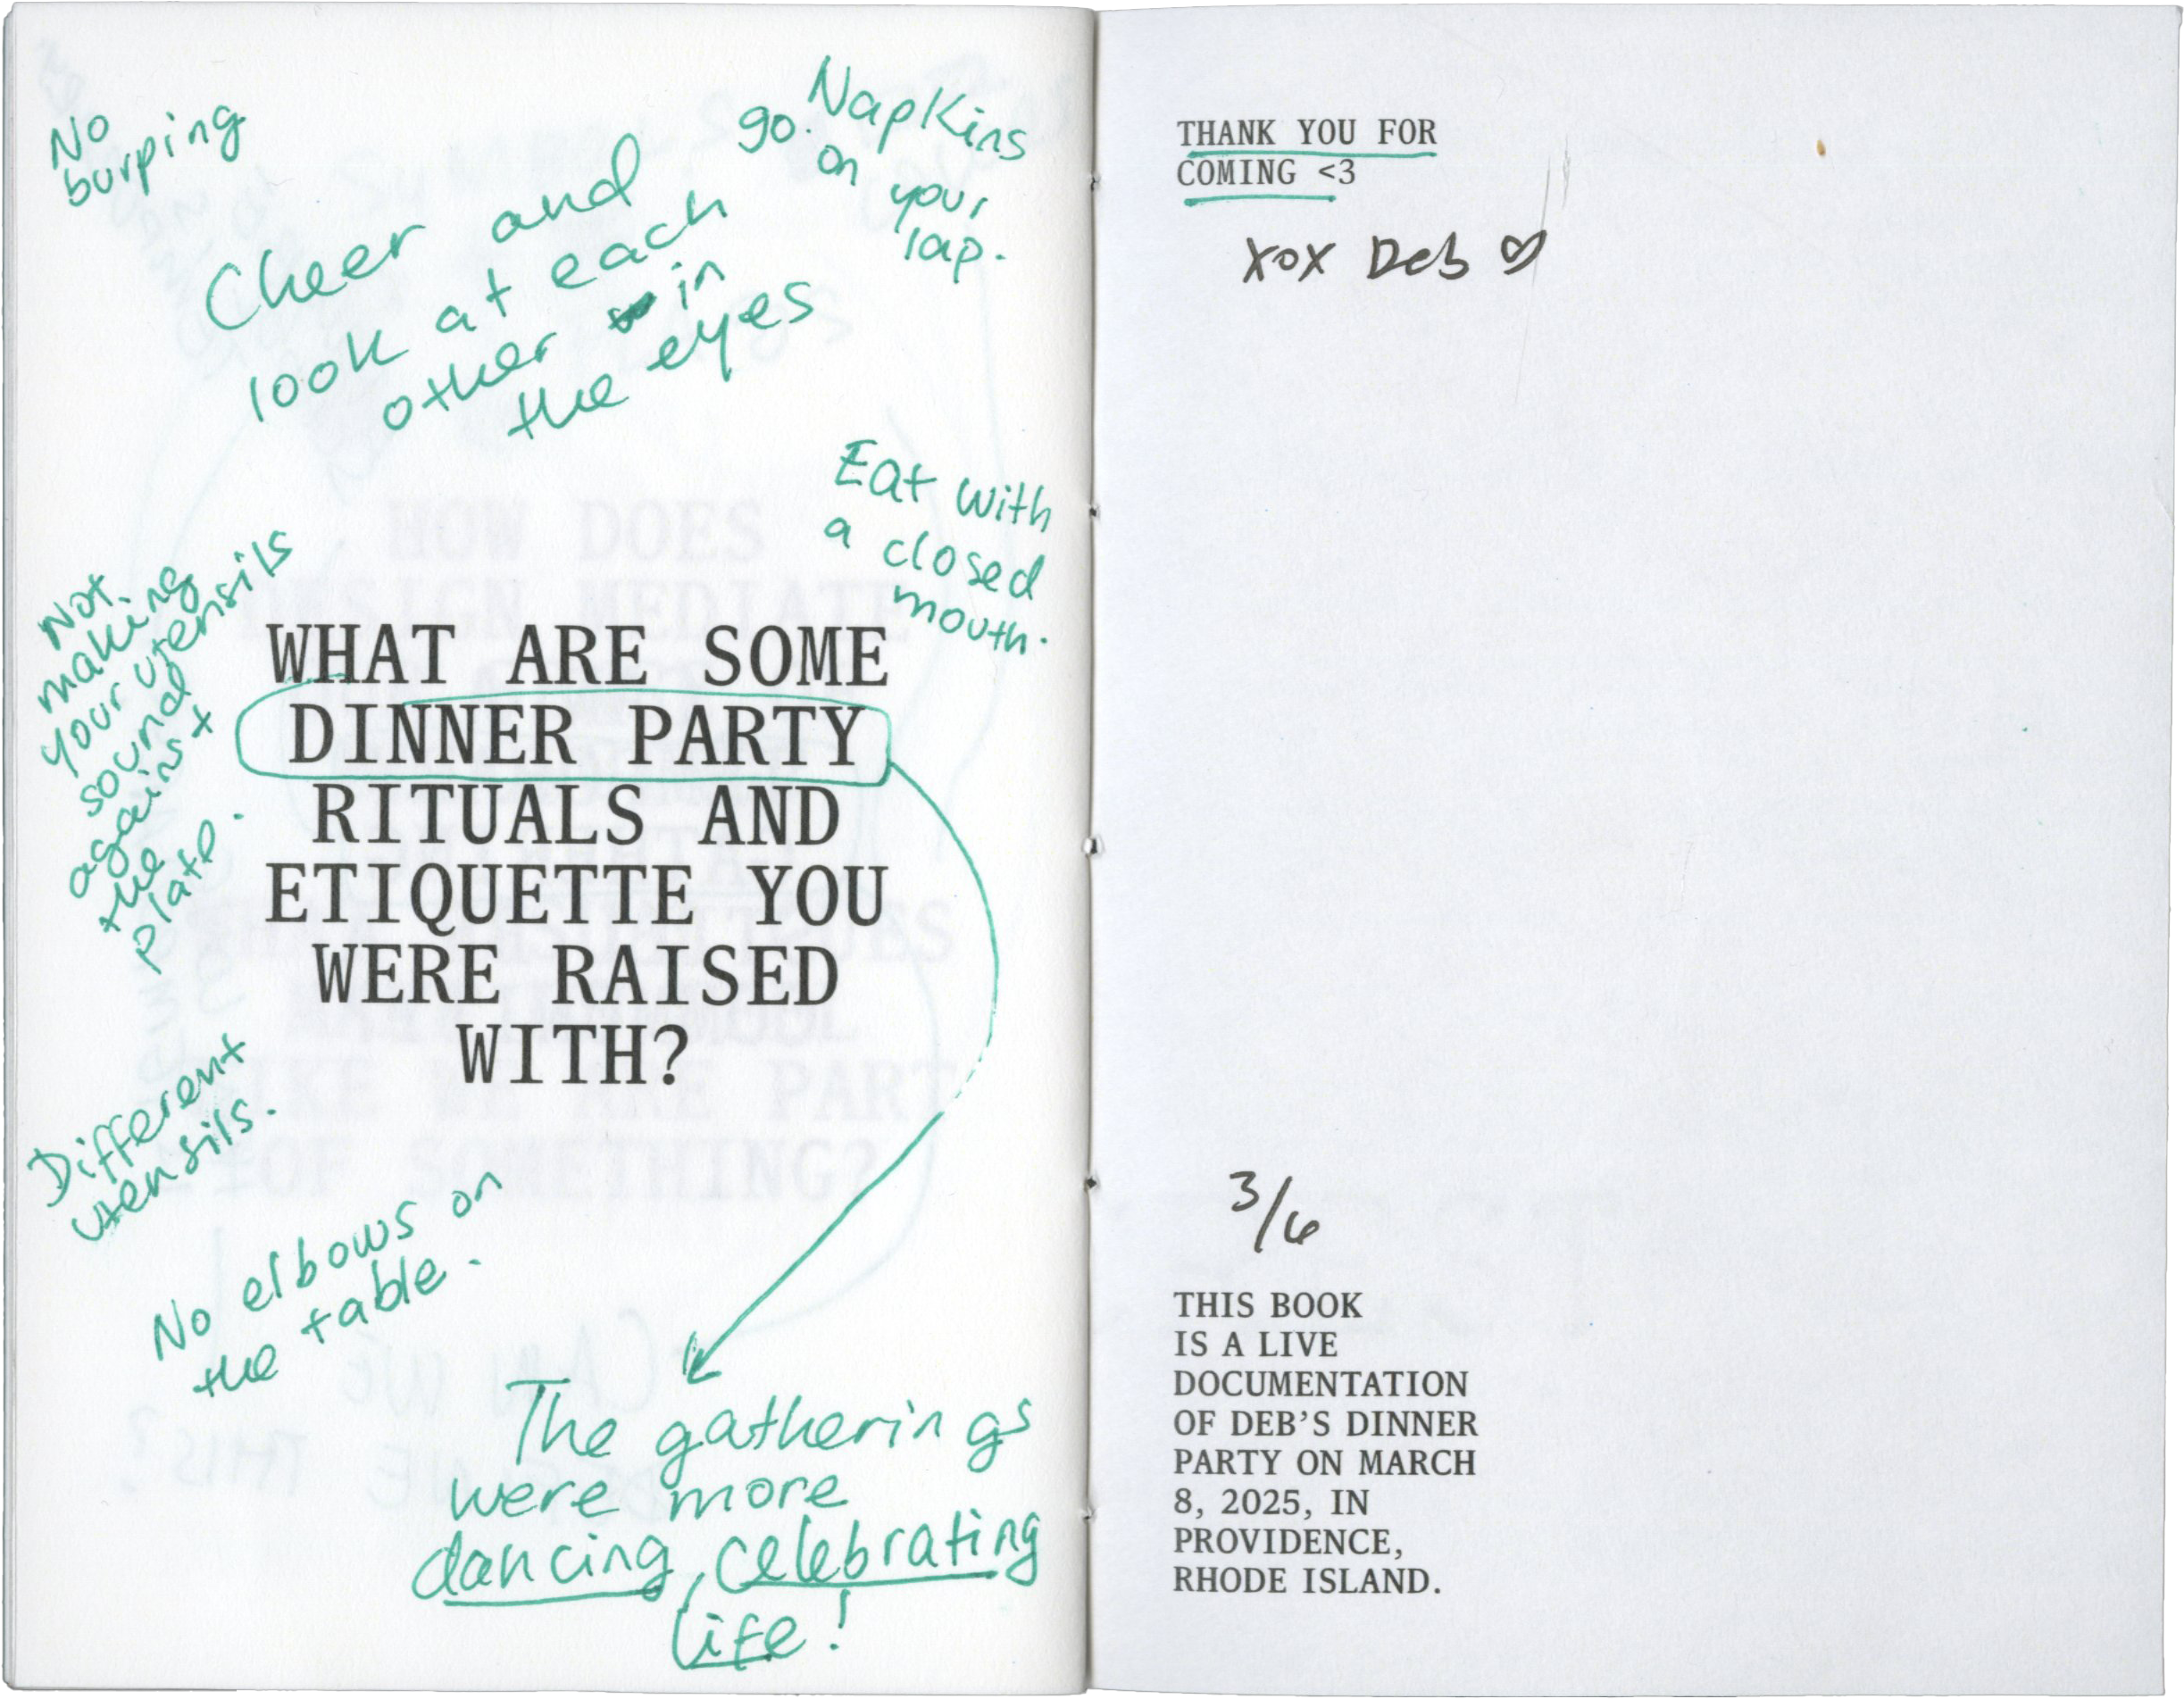 No
burping
Cheer and
look at each
other in
the eyes
go. Napkins
on
your
lap.
Eat with
a closed
mouth.
Not
making
your utensils
sound
against
the
plate.
WHAT ARE SOME
DINNER PARTY
RITUALS AND
ETIQUETTE YOU
WERE RAISED
WITH?
Different
utensils.
No elbows on
the table.
The gatherings
were more
dancing, celebrating
life!
THANK YOU FOR
COMING <3
XOX Deb ♡
3/6
THIS BOOK
IS A LIVE
DOCUMENTATION
OF DEB'S DINNER
PARTY ON MARCH
8, 2025, IN
PROVIDENCE,
RHODE ISLAND.